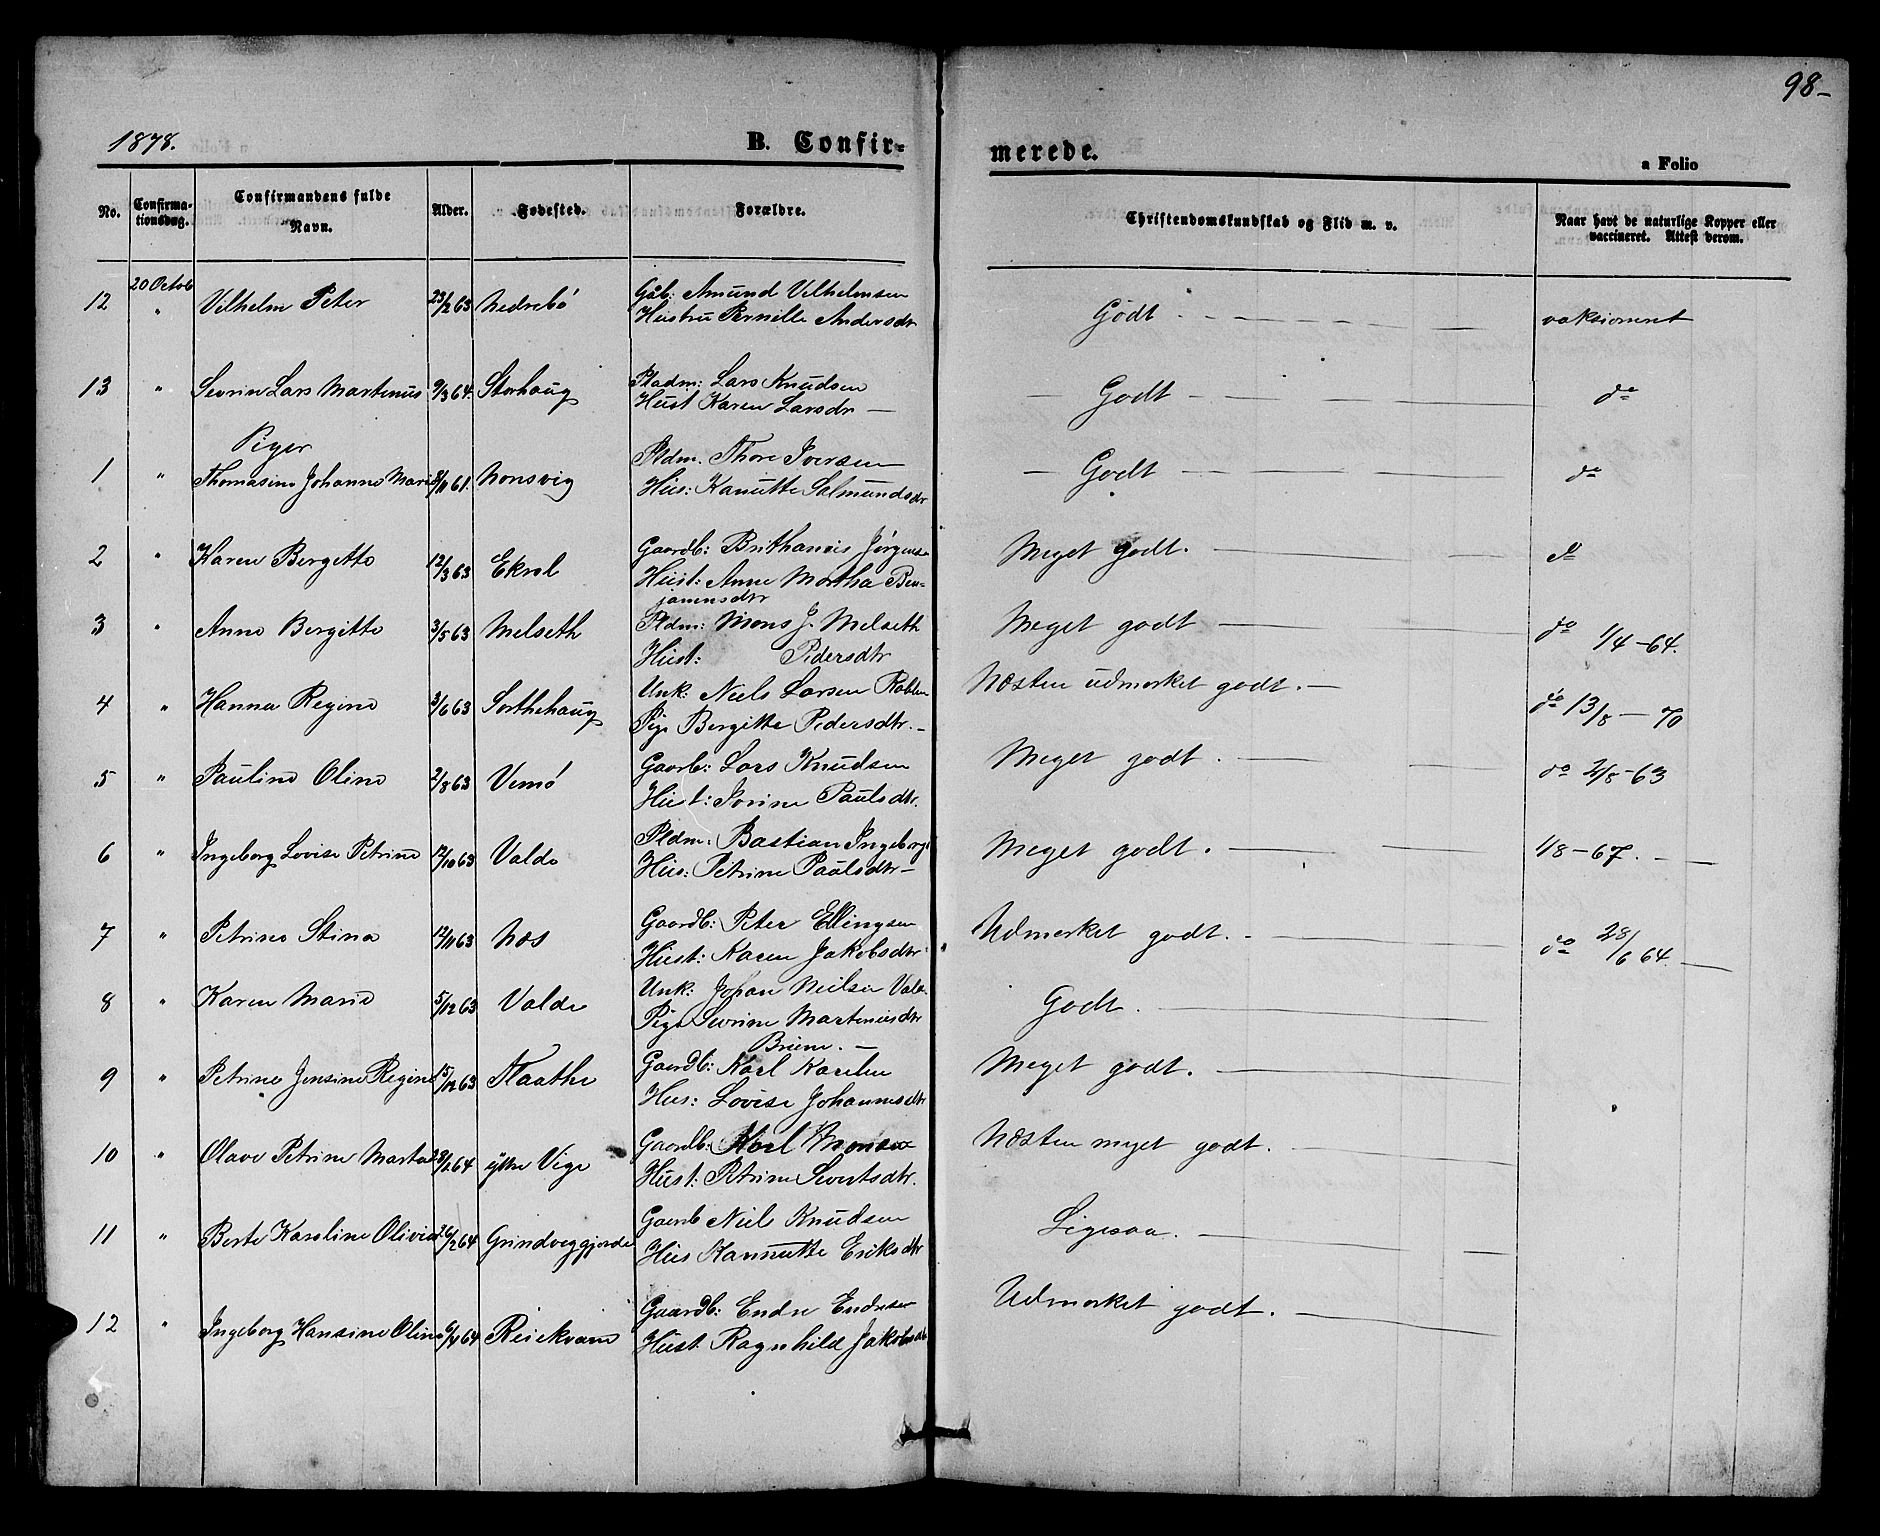 98-
1878.
B. Confir-
merede.
a Folio
No.
Confirma-
tionsdag.
Confirmandens fulde
Navn.
Alder.
Fødested.
Forældre.
Christendomskundskab og Flid m. v.
Naar havt de naturlige Kopper eller
vaccineret. Attest derom.
20 Octob
12 " Vilhelm Peter 23/2 63 Nedrebö Gåb: Amund Vilhelmsen
Hustru Pernille Andersdtr
Godt
vaksioneret
13 " Sevrin Lars Martinus 9/3 64. Storhaug Pladm: Lars Knudsen
Hust Karen Larsdr
Godt
do
Piger
1 " Thomasine Johanne Marie 8/11 61. Nonsvig Pldm. Thore Iversen
Hus: Kanutte Salmundsdtr
Godt
do
2 " Karen Bergette 12/3 63 Ekrol Gaardb: Brithanus Jørgens
Hust: Anne Martha Ben-
jaminsdtr
Meget godt.
do
3 " Anne Bergitte 3/5 63 Melseth Pldm: Mons J. Melseth
Hust: Pedersdtr
Meget godt
do 1/4-64.
4 " Hanna Regine 3/6 63 Sorthehaug Unk: Niels Larsen
Pige Bergitte Pedersdtr.
Næsten udmerket godt.
do 13/8-70
5 " Pauline Oline 2/8 63 Vemö Gaarb: Lars Knudsen
Hust: Jorine Paulsdtr.
Meget godt.
do 2/8-63
6 " Ingeborg Lovise Petrine 12/10 63 Valde Pldm: Bastian Ingebrigt
Hus: Petrine Paulsdtr
Meget godt.
1/8-67.
7 " Petrine Stina 12/11 63 Næs Gaardb: Peter Ellingsen
Hust: Karen Jakobsdtr
Udmerket godt.
do 28/6 64.
8 " Karen Marie 5/12 63 Valde Unk: Johan Nielsen Vald
Pige Sevrine Martinusdtr
Brune.
Godt.
9 " Petrine Jensine Regine 15/12 63 Flaathe Gaardb: Karl Karlsen
Hus: Lovise Johannesdtr
Meget godt.
10 " Olave Petrine Marta 28/2 64 ytre Vige Gaardb: Karl Monsen
Hust: Petrine Sivertsdtr.
Næsten meget godt.
11 " Berte Karoline Olivia 26/2 64 Grindveggjerde Gaarb Niels Knudsen
Hus Kannutte Eriksdtr
Ligesaa.
12 " Ingeborg Hansine Oline 6/4 64 Reiekvam Gaardb: Endre Endresen
Hust. Ragnhild Jakobsdtr
Udmerket godt.